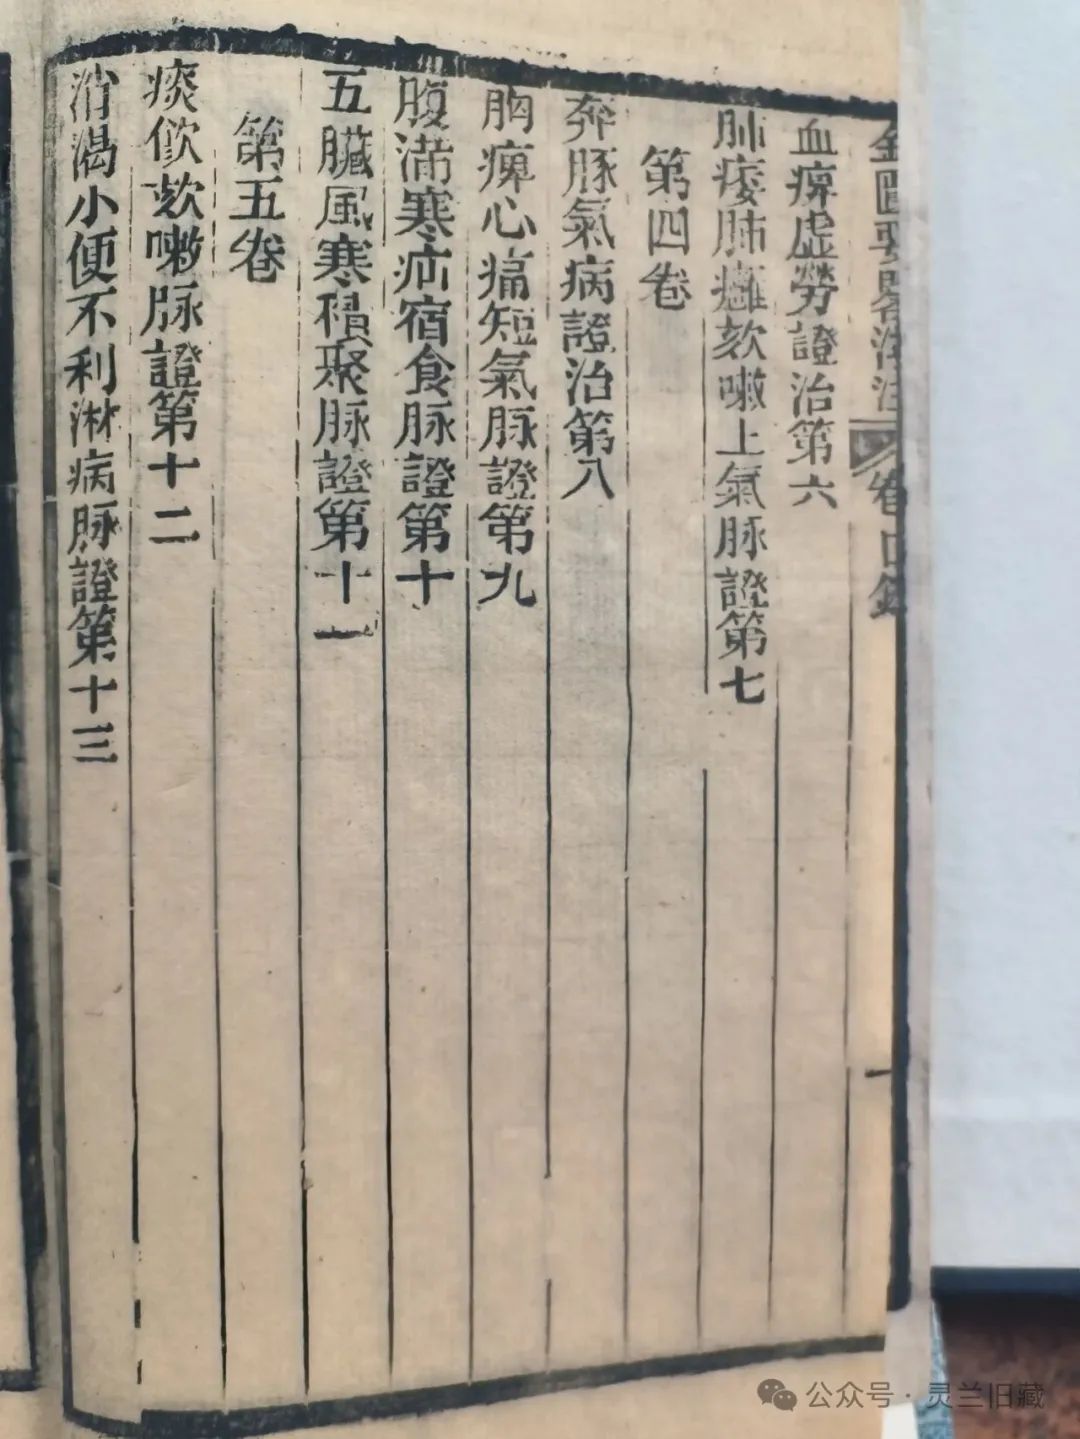 金匱要畧淺注 卷目錄 一
血痺虛勞證治第六
肺痿肺癰欬嗽上氣脉證第七
第四卷
奔豚氣病證治第八
胸痺心痛短氣脉證第九
腹滿寒疝宿食脉證第十
五臟風寒積聚脉證第十一
第五卷
痰飲欬嗽脉證第十二
消渴小便不利淋病脉證第十三
公众号·灵兰旧藏